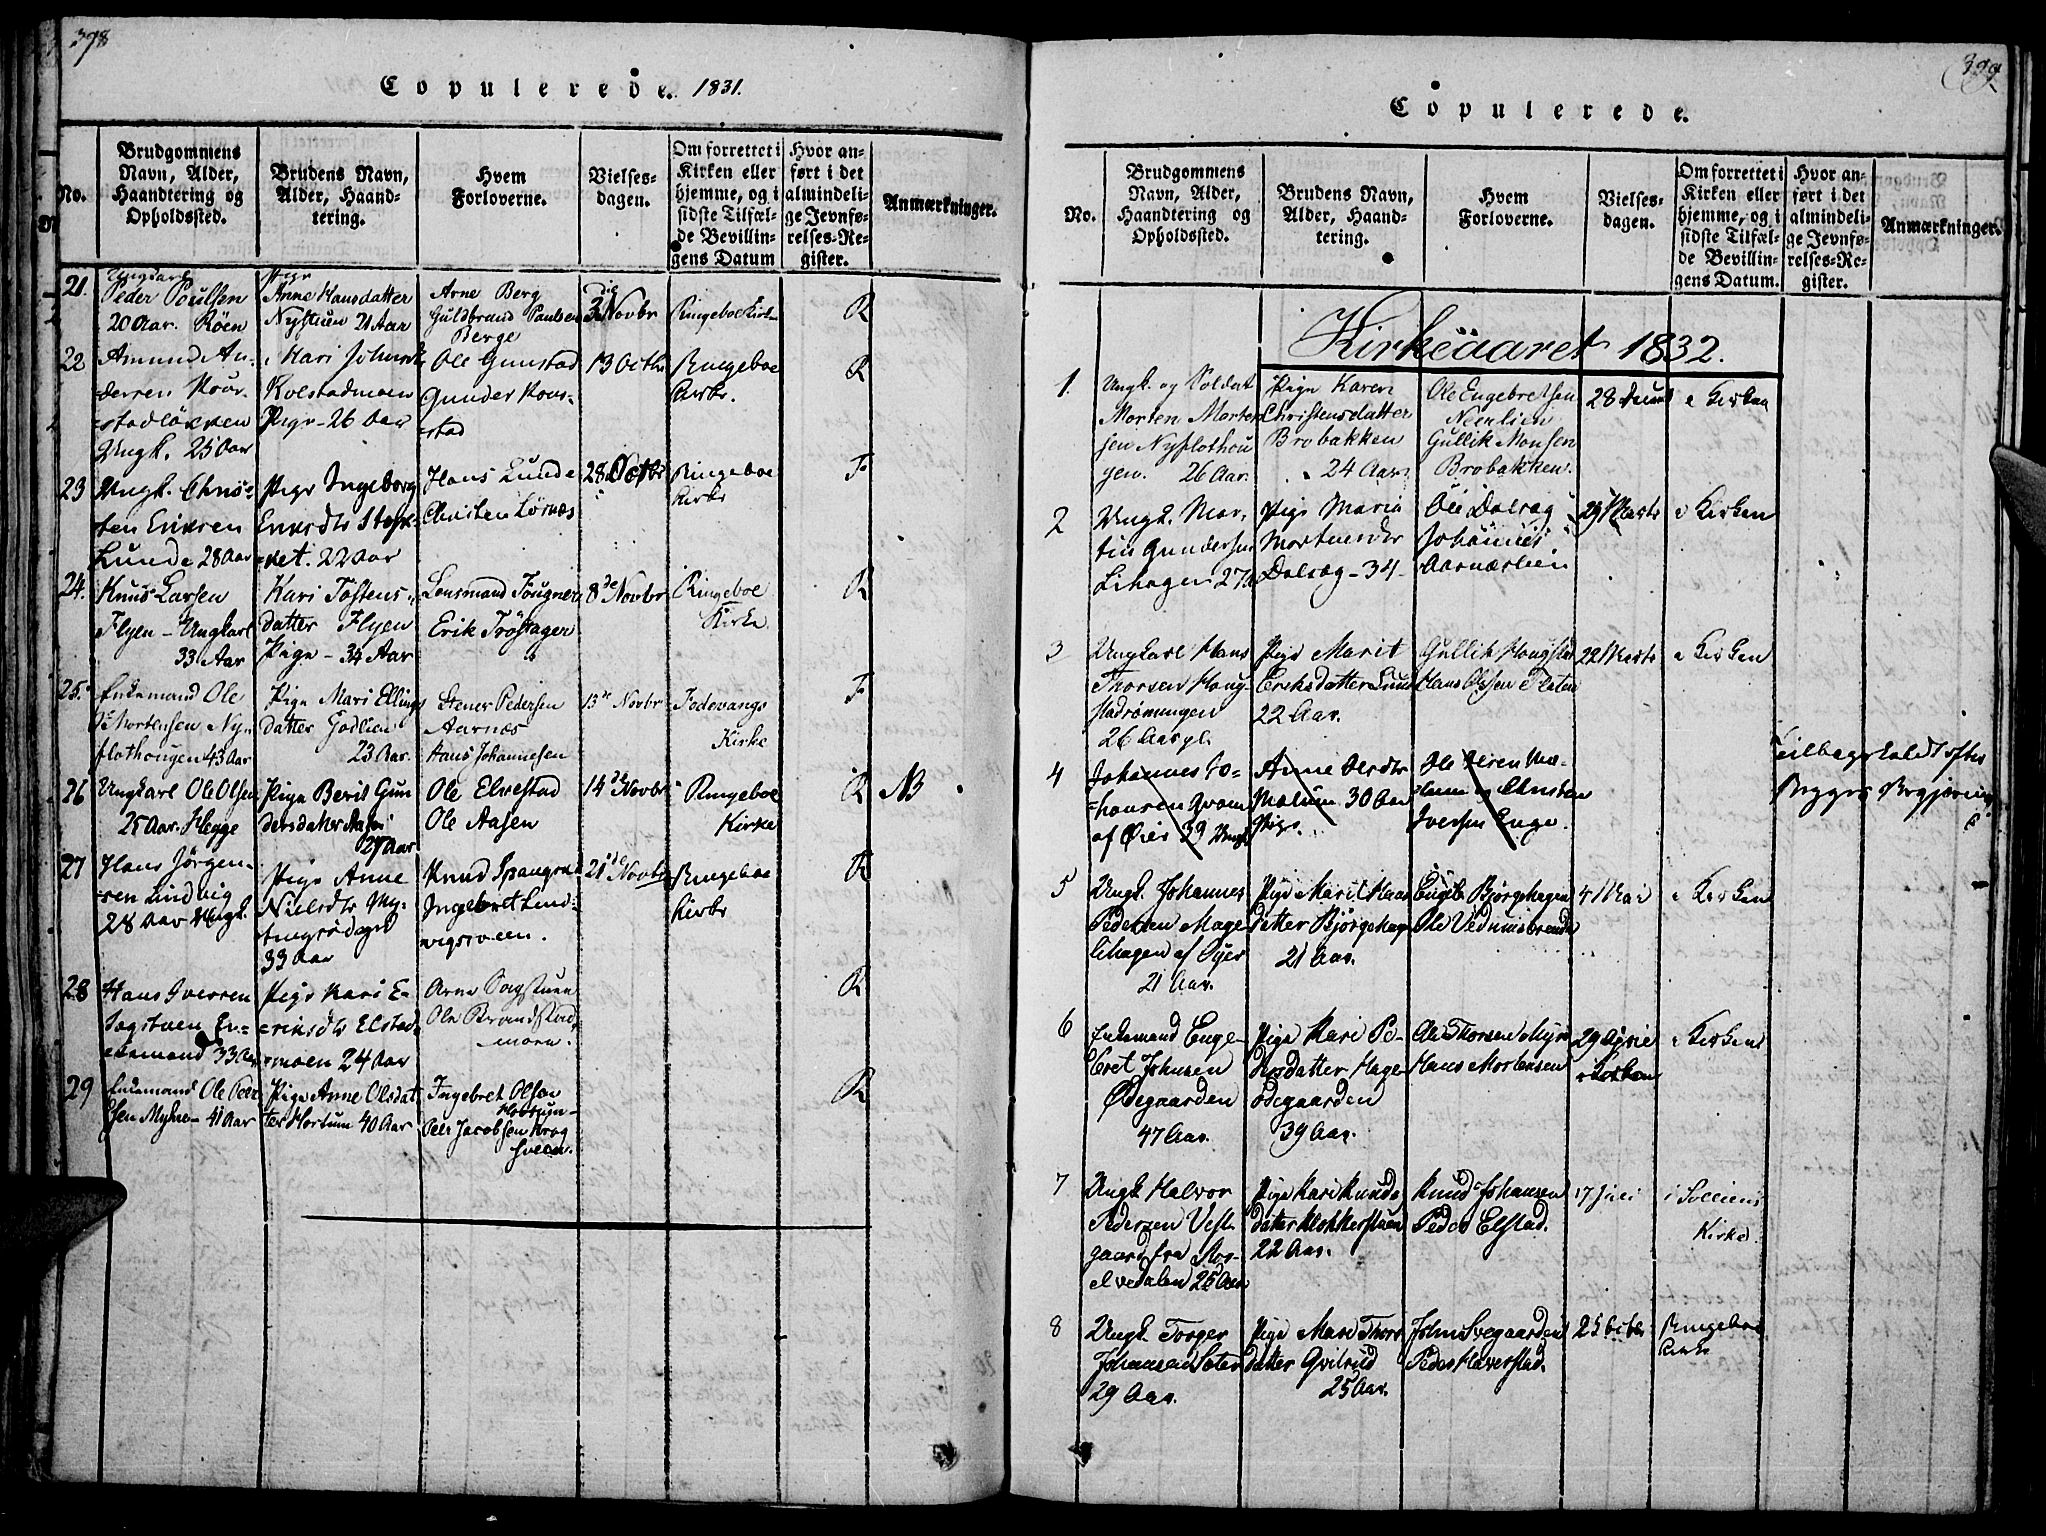 398
Copulerede. 1831.
No.
Brudgommens Navn, Alder, Haandtering og Opholdssted.
Brudens Navn, Alder, Haandtering.
Hvem Forloverne.
Vielses-dagen.
Om forrettet i Kirken eller hjemme, og i sidste Tilfælde Bevillingens Datum
Hvor anført i det almindelige Jevnførelses-Register.
Anmærkninger.
21.
Ungkarl
Peder Poulsen
20 Aar. Röen
Pige
Anne Hansdatter
Nystuen 21 Aar
Arne Berg
Guldbrand Paulsen
Berge
3die Novbr
Ringeboe Kirke
R
22
Amund An-
dersen
Ungk. 25 Aar
Mari Johnsdt
Kolstadmoen
Pige - 26 Aar
Ole Gunstad
Gunder
stad
13 Octbr
Ringeboe
Kirke.
R
23
Ungk. Chris-
ten Ericsen
Lunde 28 Aar
Pige Ingeborg
22 Aar
Hans Lunde
Christen Lörnæs
28 Octbr
Ringeboe
Kirke
F
24.
Knud Larsen
Flyen - Ungkarl
33 Aar
Kari Tostens-
datter Flyen
Pige - 34 Aar
Lensmand Fougner
Erik Tröstager
8de Novbr
Ringeboe
Kirke.
R
25.
Enkemand Ole
Mortensen Ny-
flothougen 43 Aar
Pige Mari Ellings
datter Godlien
23 Aar.
Stener Pedersen
Aarnæs
Hans Johannesen
13de Novbr
Fodevangs
Kirke
F
26
Ungkarl Ole Olsen
25 Aar. Hegge
Pige Berit Gun
dersdatter Aasen
Ole Elvestad
Ole Aasen
14de Novbr
Ringeboe
Kirke
R
NB
27
Hans Jörgen-
sen Lindvig
28 Aar Ungk.
Pige Anne
Nielsdtr My-
33 Aar
Knud
Ingebret Lind-
vigsveen.
21de Novbr
Ringeboe
Kirke
R
28
Hans Iversen
Sagstuen En-
kemand 33 Aar
Pige Kari E-
riksdtr Elstad-
moen 24 Aar
Arne Sagstuen
Ole Brandstad
moen.
R
29
Enkemand Ole Peder
sen Myhre - 41 Aar
Pige Anne Olsdat
ter Hortum 40 Aar
Ingebret Olsen
Peder Jacobsen Krog
sveen.
R
399
Copulerede.
No.
Brudgommens Navn, Alder, Haandtering og Opholdssted.
Brudens Navn, Alder, Haandtering.
Hvem Forloverne.
Vielses-dagen.
Om forrettet i Kirken eller hjemme, og i sidste Tilfælde Bevillingens Datum.
Hvor anført i det almindelige Jevnførelses-Register.
Anmærkninger.
Kirkeaaret 1832.
1.
Ungk. og Soldat
Morten Morten
sen Nyflothou
gen. 26 Aar.
Pige Karen
Christensdatter
Brobakken
24 Aar.
Ole Engebretsen
Neerlien
Gullik Monsen
Brobakken.
28
i Kirken
2
Ungk. Mor-
tin Gundersen
Lihagen 27 a
Pige Maria
Mortensdtr
Dalsæg - 34 -
Ole Dalsæg
Johannes
Aarnæslien
29 Marts
i Kirken
3
Ungkarl Hans
Thorsen Houg-
stadrönningen
26 Aar gl.
Pige Marit
Eriksdatter Lund
22 Aar.
Gullik Hougstad
Hans Olssen Flaten
22 Marts
i Kirken
4
Johannes Jo-
hansen Qvam
af Öier 39 Ungk
Anne Olsdtr
Mælum 30 Aar
Pige.
Ole Iversen Mæ-
lum og Christen
Iversen Enge.
Tilbagekaldt efter
Begges Begjæring
5
Ungk. Johannes
Pedersen Mage-
lihagen af Öyer
21 Aar.
Pige Marit Hans
datter Björgehagen
21 Aar.
Engebr Björgehagen
Ole Vedumsbrenden
4 Mai
i Kirken
6
Enkemand Enge-
bret Johnsen
Ödegaarden
47 Aar.
Pige Kari Pe-
dersdatter Hage-
ödegaarden
39 Aar.
Ole Thorsen Myre
Hans Mortensen
29 Aprie
i Kirken
7
Ungk Halvor
Pedersen Vest-
gaard fra Stor-
elvedalen 25 Aar
Pige Kari Knuds
datter Klokkerstuen
22 Aar.
Knud Johansen
Peder Elstad.
17 Juli
i Solliens
Kirke.
8
Ungk. Torger
Johansen Sater
29 Aar.
Pige Mari Thors
datter Qvilrud
25 Aar.
John Svegaarden
Peder Haverstad.
25 Octbr
Ringeboe
Kirke